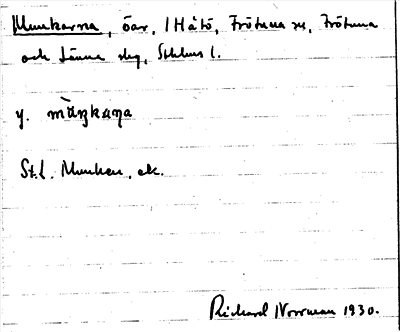 Munkarna, öar, 1 Håtö, Frötuna sn, Frötuna
och Länna slg, Sthlms l.
y. mùŋkaɳa
St. L. Munken, ek.
Richard Norrman 1930.